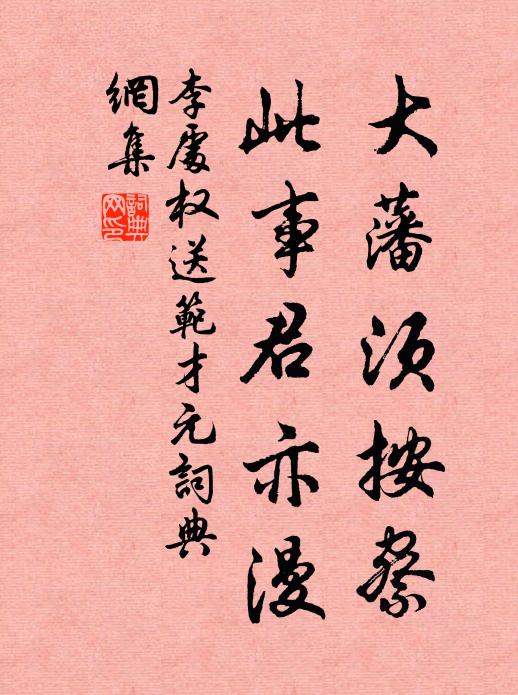 大藩須按察
此事君亦漫
李處权送範才元詞典
網集
詞典
网印